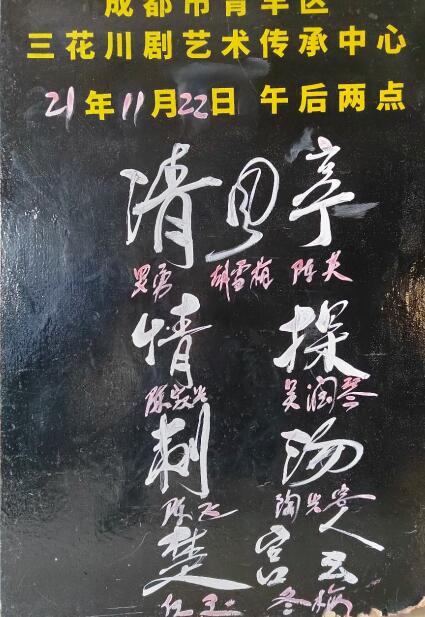 成都市青羊区
三花川剧艺术传承中心
21年11月22日 午后两点
清风亭
罗勇 胡雪梅 陈芙
情探
吴润琴
刺汤
陈飞 陶先容
楚宫
冬梅